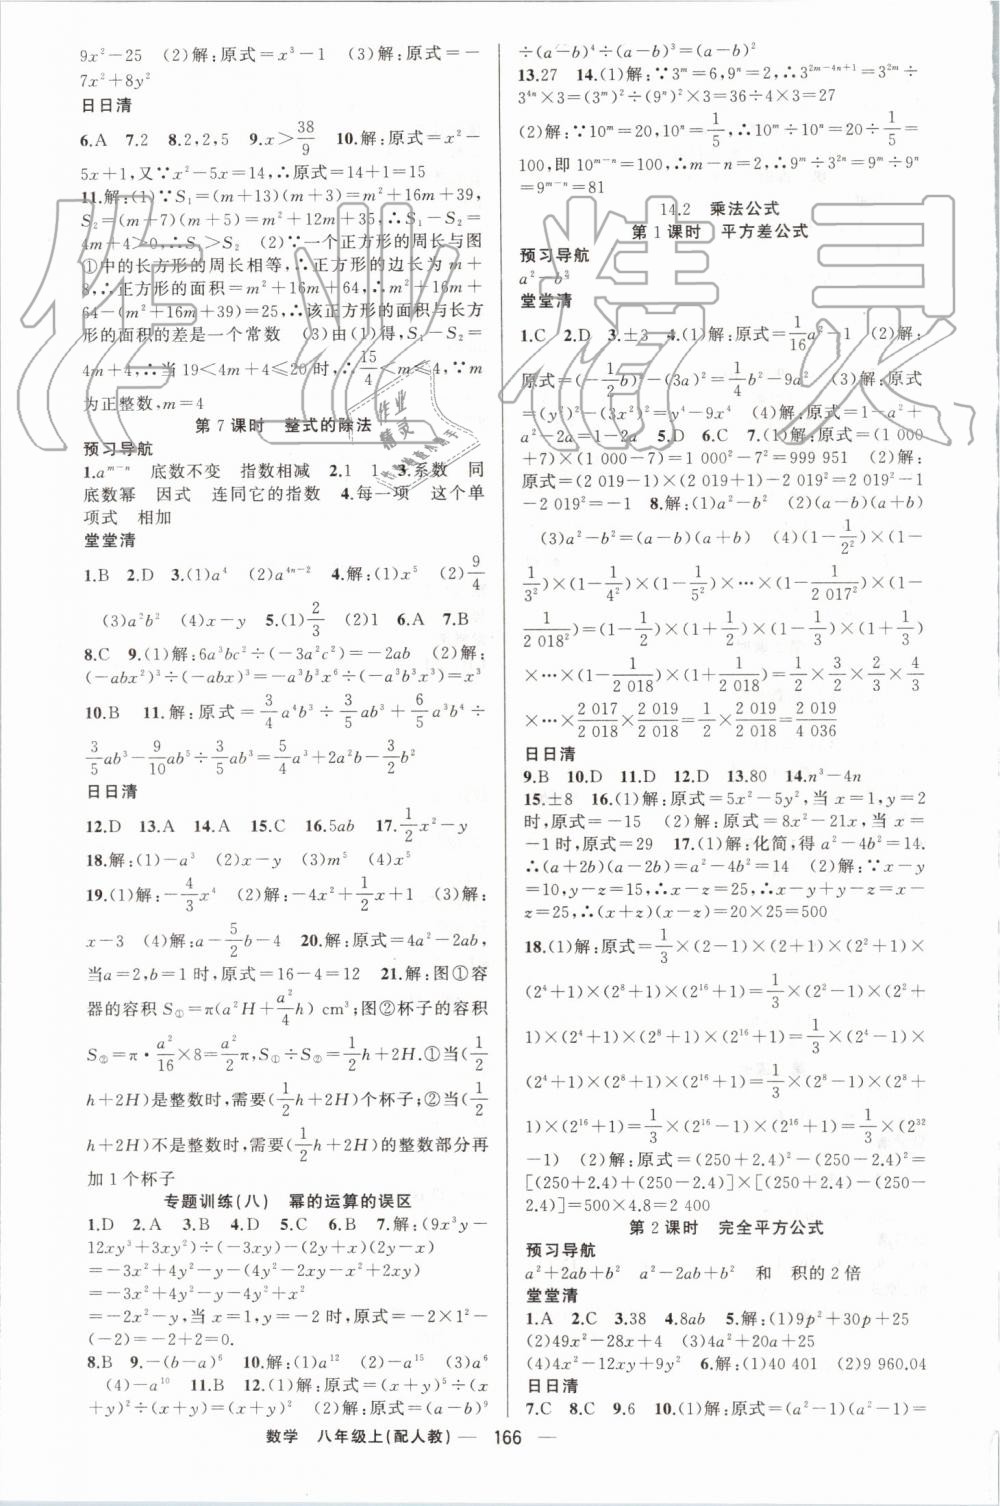 9x²-25 (2)解:原式=x³-1 (3)解:原式=-
7x²+8y²
日日清
6.A 7.2 8.2,2,5 9.x>38/9 10.解:原式=x²-
5x+1,又∵x²-5x=14,∴原式=14+1=15
11.解:(1)∵S₁=(m+13)(m+3)=m²+16m+39,
S₂=(m+7)(m+5)=m²+12m+35,∴S₁-S₂=
4m+4>0,∴S₁>S₂ (2)∵一个正方形的周长与图
①中的长方形的周长相等,∴正方形的边长为m+
8,∴正方形的面积=m²+16m+64,∴m²+16m+
64-(m²+16m+39)=25,∴该正方形的面积与长方
形的面积的差是一个常数 (3)由(1)得,S₁-S₂=
4m+4,∴当19<4m+4≤20时,∴15/4<m≤4,∵m
为正整数,m=4
第7课时 整式的除法
预习导航
1.a^(m-n) 底数不变 指数相减 2.1 1 3.系数 同
底数幂 因式 连同它的指数 4.每一项 这个单
项式 相加
堂堂清
1.B 2.D 3.(1)a⁴ (2)a^(4n-2) 4.解:(1)x⁵ (2)9/4
(3)a²b² (4)x-y 5.(1)2/3 (2)1 6.A 7.B
8.C 9.(1)解:6a³bc²÷(-3a²c²)=-2ab (2)解:
(-abx²)³÷(-abx)³=-a³b³x⁶÷(-a³b³x³)=x³
10.B 11.解:原式=3/4a⁴b³÷3/5ab³+6/5a³b⁴÷
3/5ab³-9/10ab⁵÷3/5ab³=5/4a³+2a²b-3/2b²
日日清
12.D 13.A 14.A 15.C 16.5ab 17.1/2x²-y
18.解:(1)-a³ (2)x-y (3)m⁵ (4)x⁵
19.(1)解:-4/3x⁴ (2)解:-4x²+1/2x+1 (3)解:
x-3 (4)解:a-5/2b-4 20.解:原式=4a²-2ab,
当a=2,b=1时,原式=16-4=12 21.解:图①容
器的容积S①=π(a²H+a²/4h) cm³;图②杯子的容积
S②=π·a²/16×8=a²/2π,S①÷S②=1/2h+2H.①当(1/2
h+2H)是整数时,需要(1/2h+2H)个杯子;②当(1/2
h+2H)不是整数时,需要(1/2h+2H)的整数部分再
加1个杯子
专题训练(八) 幂的运算的误区
1.D 2.A 3.B 4.D 5.C 6.B 7.解:(9x³y-
12xy³+3xy²)÷(-3xy)-(2y+x)(2y-x)
=-3x²+4y²-y-(4y²-2xy+2xy-x²)
=-3x²+4y²-y-4y²+x²
=-2x²-y,当x=1,y=-2时,原式=-2×1²-
(-2)=-2+2=0.
8.B 9.-(b-a)⁶ 10.解:(1)a¹² (2)-a¹⁵ (3)a⁶
(4)-a¹⁰ 11.B 12.(1)解:原式=(x+y)⁵÷(x+
y)²÷(x+y)=(x+y)² (2)解:原式=(a-b)⁹
÷(a-b)⁴÷(a-b)³=(a-b)²
13.27 14.(1)解:∵3^m=6,9^n=2,∴3^(2m-4n+1)=3^(2m)÷
3^(4n)×3=(3^m)²÷(9^n)²×3=36÷4×3=27
(2)解:∵10^m=20,10^n=1/5,∴10^m÷10^n=20÷1/5=
100,即10^(m-n)=100,∴m-n=2,∴9^m÷3^(2n)=9^m÷9^n
=9^(m-n)=81
14.2 乘法公式
第1课时 平方差公式
预习导航
a²-b²
堂堂清
1.C 2.D 3.±3 4.(1)解:原式=1/16a²-1 (2)解:
原式=(-1/2b)²-(3a)²=1/4b²-9a² (3)解:原式
=(y²)²-(3x²)²=y⁴-9x⁴ (4)解:原式=1-a²+
a²-2a=1-2a 5.D 6.C 7.(1)解:原式=(1 000
+7)×(1 000-7)=1 000²-7²=999 951 (2)解:
原式=(2 019-1)×(2019+1)-2 019²=2 019²-1
-2 019²=-1 8.解:(1)a²-b² (2)(a-b)(a+b)
(3)a²-b²=(a-b)(a+b) (4)(1-1/2²)×(1-
1/3²)×(1-1/4²)×(1-1/5²)×···×(1-1/2 017²)×(1-
1/2 018²)=(1-1/2)×(1+1/2)×(1-1/3)×(1+1/3)
×···×(1-1/2 018)×(1+1/2 018)=1/2×3/2×2/3×4/3
×···×2 017/2 018×2 019/2 018=1/2×2 019/2 018=2 019/4 036
日日清
9.B 10.D 11.D 12.D 13.80 14.n³-4n
15.±8 16.(1)解:原式=5x²-5y²,当x=1,y=2
时,原式=-15 (2)解:原式=8x²-21x,当x=
-1时,原式=29 17.(1)解:化简,得a²-4b²=14.
∴(a+2b)(a-2b)=a²-4b²=14 (2)解:∵x-y
=10,y-z=15,∴x-z=25,∴x-y+y-z=x-
z=25,∴(x+z)(x-z)=20×25=500
18.(1)解:原式=1/3×(2-1)×(2+1)×(2²+1)×
(2⁴+1)×(2⁸+1)×(2¹⁶+1)=1/3×(2²-1)×(2²+
1)×(2⁴+1)×(2⁸+1)×(2¹⁶+1)=1/3×(2⁴-1)×
(2⁴+1)×(2⁸+1)×(2¹⁶+1)=1/3×(2⁸-1)×(2⁸+
1)×(2¹⁶+1)=1/3×(2¹⁶-1)×(2¹⁶+1)=1/3×(2³²
-1) (2)解:原式=(250+2.4)²-(250-2.4)²=
[(250+2.4)+(250-2.4)]×[(250+2.4)-(250-
2.4)]=500×4.8=2 400
第2课时 完全平方公式
预习导航
a²+2ab+b² a²-2ab+b² 和 积的2倍
堂堂清
1.A 2.C 3.38 4.8ab 5.解:(1)9p²+30p+25
(2)49x²-28x+4 (3)4a²+20a+25
(4)4x²-12xy+9y² 6.解:(1)40 401 (2)9 960.04
日日清
7.C 8.C 9.6 10.(1)解:原式=(a²-1)(a²-1)=
数学 八年级上(配人教) — 166 —
作业精灵